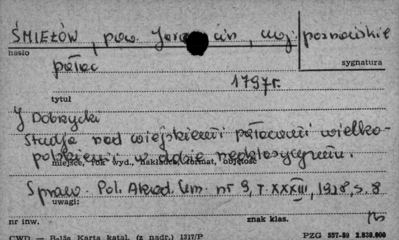 ŚMIEŁÓW, pow. Jarocin, woj. poznańskie
hasło
sygnatura
pałac
1797r.
tytuł
J Dobrzycki
Studja nad wiejskiemi pałacami wielko-
polskiemi w dobie neoklasycyzmu.
miejsce, rok wyd., nakładca, format, objętość
Spraw. Pol. Akad. Um. nr 9, T. XXXIII, 1928, s. 8
uwagi:
nr inw.
znak klas.
CWD — B-15a Karta katal. (z nadr.) 1317/P
PZG 557-59 2.838.000